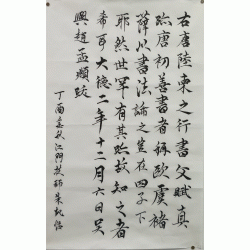 右唐陸柬之行書文賦真
跡唐初善書者稱歐虞褚
薛以書法論之豈在四子下
耶然世罕有其跡故知之者
希可大德二年十二月六日吳
興趙孟頫跋
丁酉